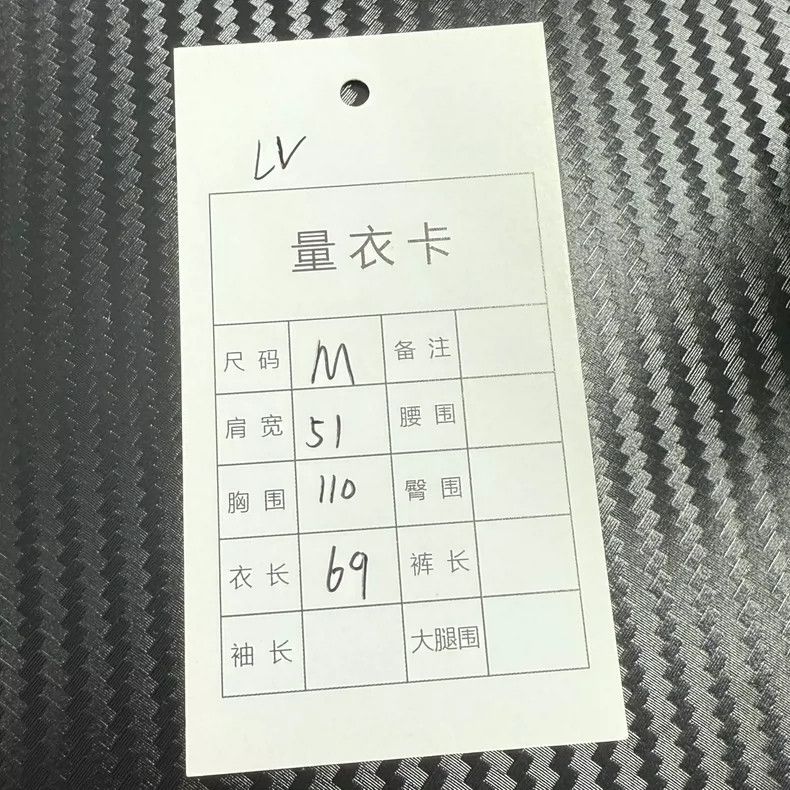 LV
量衣卡
尺码 M 备注
肩宽 51 腰围
胸围 110 臀围
衣长 69 裤长
袖长 大腿围